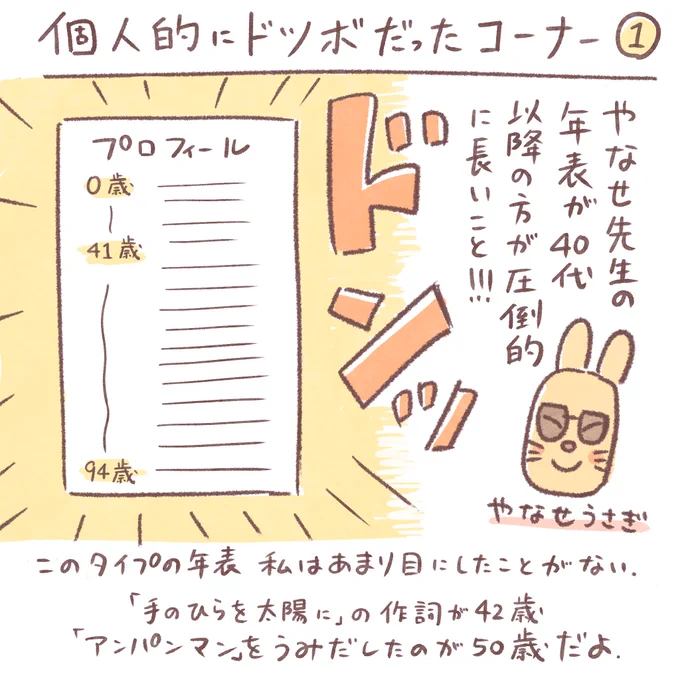 個人的にドツボだったコーナー①
やなせ先生の
年表が40代
以降の方が圧倒的
に長いこと!!!
ドンッ
プロフィール
0歳
41歳
94歳
やなせうさぎ
このタイプの年表 私はあまり目にしたことがない.
「手のひらを太陽に」の作詞が42歳
「アンパンマン」をうみだしたのが50歳だよ.